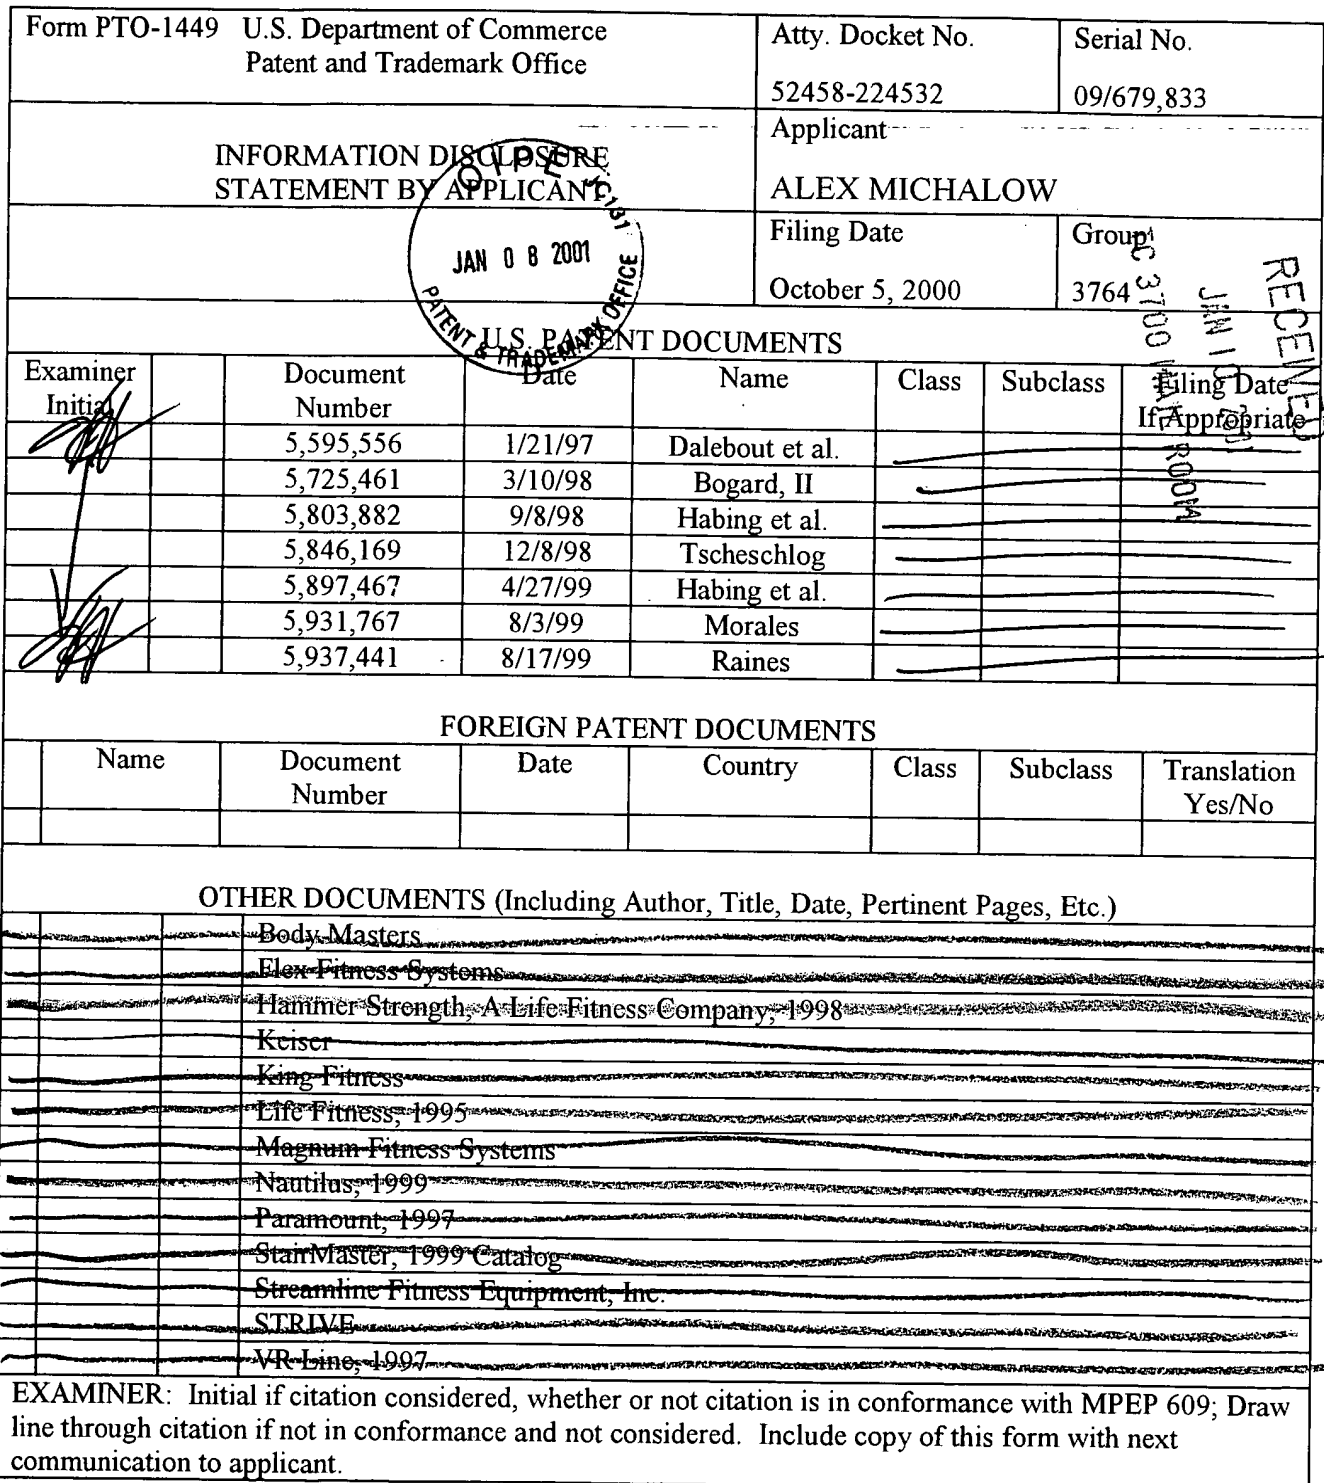 Form PTO-1449 U.S. Department of Commerce
Patent and Trademark Office
Atty. Docket No.
52458-224532
Serial No.
09/679,833
INFORMATION DISCLOSURE
STATEMENT BY APPLICANT
Applicant
ALEX MICHALOW
Filing Date
October 5, 2000
Group
3764
OIPE JC131
JAN 08 2001
PATENT & TRADEMARK OFFICE
RECEIVED
JAN 10
TC 3700 MAIL ROOM
U.S. PATENT DOCUMENTS
Examiner Initial Document Number Date Name Class Subclass Filing Date If Appropriate
5,595,556 1/21/97 Dalebout et al.
5,725,461 3/10/98 Bogard, II
5,803,882 9/8/98 Habing et al.
5,846,169 12/8/98 Tscheschlog
5,897,467 4/27/99 Habing et al.
5,931,767 8/3/99 Morales
5,937,441 8/17/99 Raines
FOREIGN PATENT DOCUMENTS
Name Document Number Date Country Class Subclass Translation Yes/No
OTHER DOCUMENTS (Including Author, Title, Date, Pertinent Pages, Etc.)
Body Masters
Flex Fitness Systems
Hammer Strength, A Life Fitness Company, 1998
Keiser
King Fitness
Life Fitness, 1995
Magnum Fitness Systems
Nautilus, 1999
Paramount, 1997
StairMaster, 1999 Catalog
Streamline Fitness Equipment, Inc.
STRIVE
VR Line, 1997
EXAMINER: Initial if citation considered, whether or not citation is in conformance with MPEP 609; Draw
line through citation if not in conformance and not considered. Include copy of this form with next
communication to applicant.